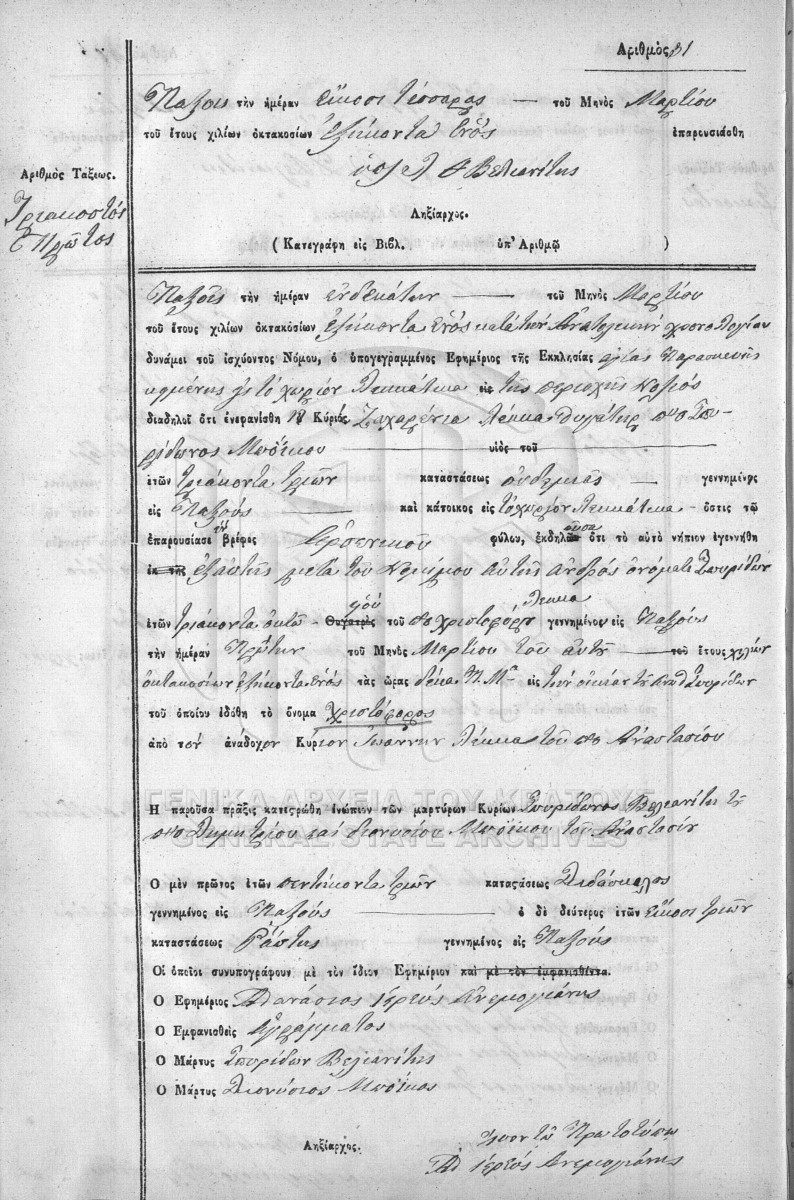 Αριθμὸς 31
Παξοῖς τὴν ἡμέραν εἴκοσι τέσσαρας — τοῦ Μηνὸς Μαρτίου
τοῦ ἔτους χιλίων ὀκτακοσίων ἑξήκοντα ἑνὸς ἐπαρουσιάσθη
Βελιανίτης
Ἀριθμὸς Τάξεως.
Τριακοστὸς
Πρῶτος
Ληξίαρχος.
( Κατεγράφη εἰς Βιβλ. ὑπ' Ἀριθμῷ )
Παξοῖς τὴν ἡμέραν ἑνδεκάτην — τοῦ Μηνὸς Μαρτίου
τοῦ ἔτους χιλίων ὀκτακοσίων ἑξήκοντα ἑνὸς κατὰ τὴν Ἀνατολικὴν χρονολογίαν
δυνάμει τοῦ ἰσχύοντος Νόμου, ὁ ὑπογεγραμμένος Ἐφημέριος τῆς Ἐκκλησίας ἁγίας Παρασκευῆς
κειμένης εἰς τὸ χωρίον Λεκκάτικα εἰς τῆς περιοχῆς
διαδηλοῖ ὅτι ἐνεφανίσθη ἡ Κυρία Ζαχαρένια Λέκκα θυγάτηρ ποτὲ Σπυ-
ρίδωνος Μπόϊκου — υἱὸς τοῦ
ἐτῶν τριάκοντα τριῶν καταστάσεως οὐδεμιᾶς — γεννημένης
εἰς Παξοὺς — καὶ κάτοικος εἰς τὸ χωρίον Λεκκάτικα - ὅστις τῷ
ἐπαρουσίασε ἓν βρέφος ἀρσενικοῦ φύλου, ἐκδηλοῦσα ὅτι τὸ αὐτὸ νήπιον ἐγεννήθη
ἐκ τῆς ἐξ αὐτῆς μετὰ τοῦ νομίμου αὐτῆς ἀνδρὸς ὀνόματι Σπυρίδων
Λέκκα
ἐτῶν τριάκοντα ὀκτὼ - Θυγατρὸς υἱοῦ τοῦ ποτὲ Χριστοφόρου γεννημένος εἰς Παξοὺς
τὴν ἡμέραν Πρώτην τοῦ Μηνὸς Μαρτίου τοῦ αὐτοῦ — τοῦ ἔτους χιλίων
ὀκτακοσίων ἑξήκοντα ἑνὸς τὰς ὥρας δέκα Π. Μ. εἰς τὴν οἰκίαν τοῦ Σπυρίδων
τοῦ ὁποίου ἐδόθη τὸ ὄνομα Χριστόφορος
ἀπὸ τὸν ἀνάδοχον Κύριον Ἰωάννην Λέκκα τοῦ ποτὲ Ἀναστασίου
ΓΕΝΙΚΑ ΑΡΧΕΙΑ ΤΟΥ ΚΡΑΤΟΥΣ
GENERAL STATE ARCHIVES
Η παροῦσα πρᾶξις κατεστρώθη ἐνώπιον τῶν μαρτύρων Κυρίων Σπυρίδωνος Βελιανίτη τοῦ
ποτὲ Δημητρίου καὶ Διονυσίου Μπόϊκου τοῦ Ἀναστασίου
Ὁ μὲν πρῶτος ἐτῶν πεντήκοντα τριῶν καταστάσεως Διδάσκαλος
γεννημένος εἰς Παξοὺς — ὁ δὲ δεύτερος ἐτῶν εἴκοσι τριῶν
καταστάσεως Ῥάπτης γεννημένος εἰς Παξοὺς
Οἱ ὁποῖοι συνυπογράφουν μὲ τὸν ἴδιον Ἐφημέριον καὶ μὲ τὸν ἐμφανισθέντα.
Ὁ Ἐφημέριος Ἀθανάσιος ἱερεὺς Ἀνεμογιάνης
Ὁ Ἐμφανισθεὶς Ἀγράμματος
Ὁ Μάρτυς Σπυρίδων Βελιανίτης
Ὁ Μάρτυς Διονύσιος Μπόϊκος
Ληξίαρχος.
Ἴσον τῷ Πρωτοτύπῳ
Ἀθ ἱερεὺς Ἀνεμογιάνης